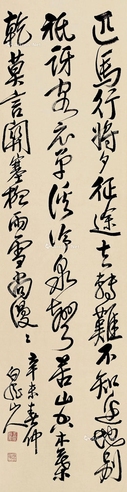 匹馬行將夕征途去轉難不知邊地別
祗訝客衣單溪冷泉聲苦山空木葉
乾莫言關塞極雨雪尚漫〻
辛未春仲